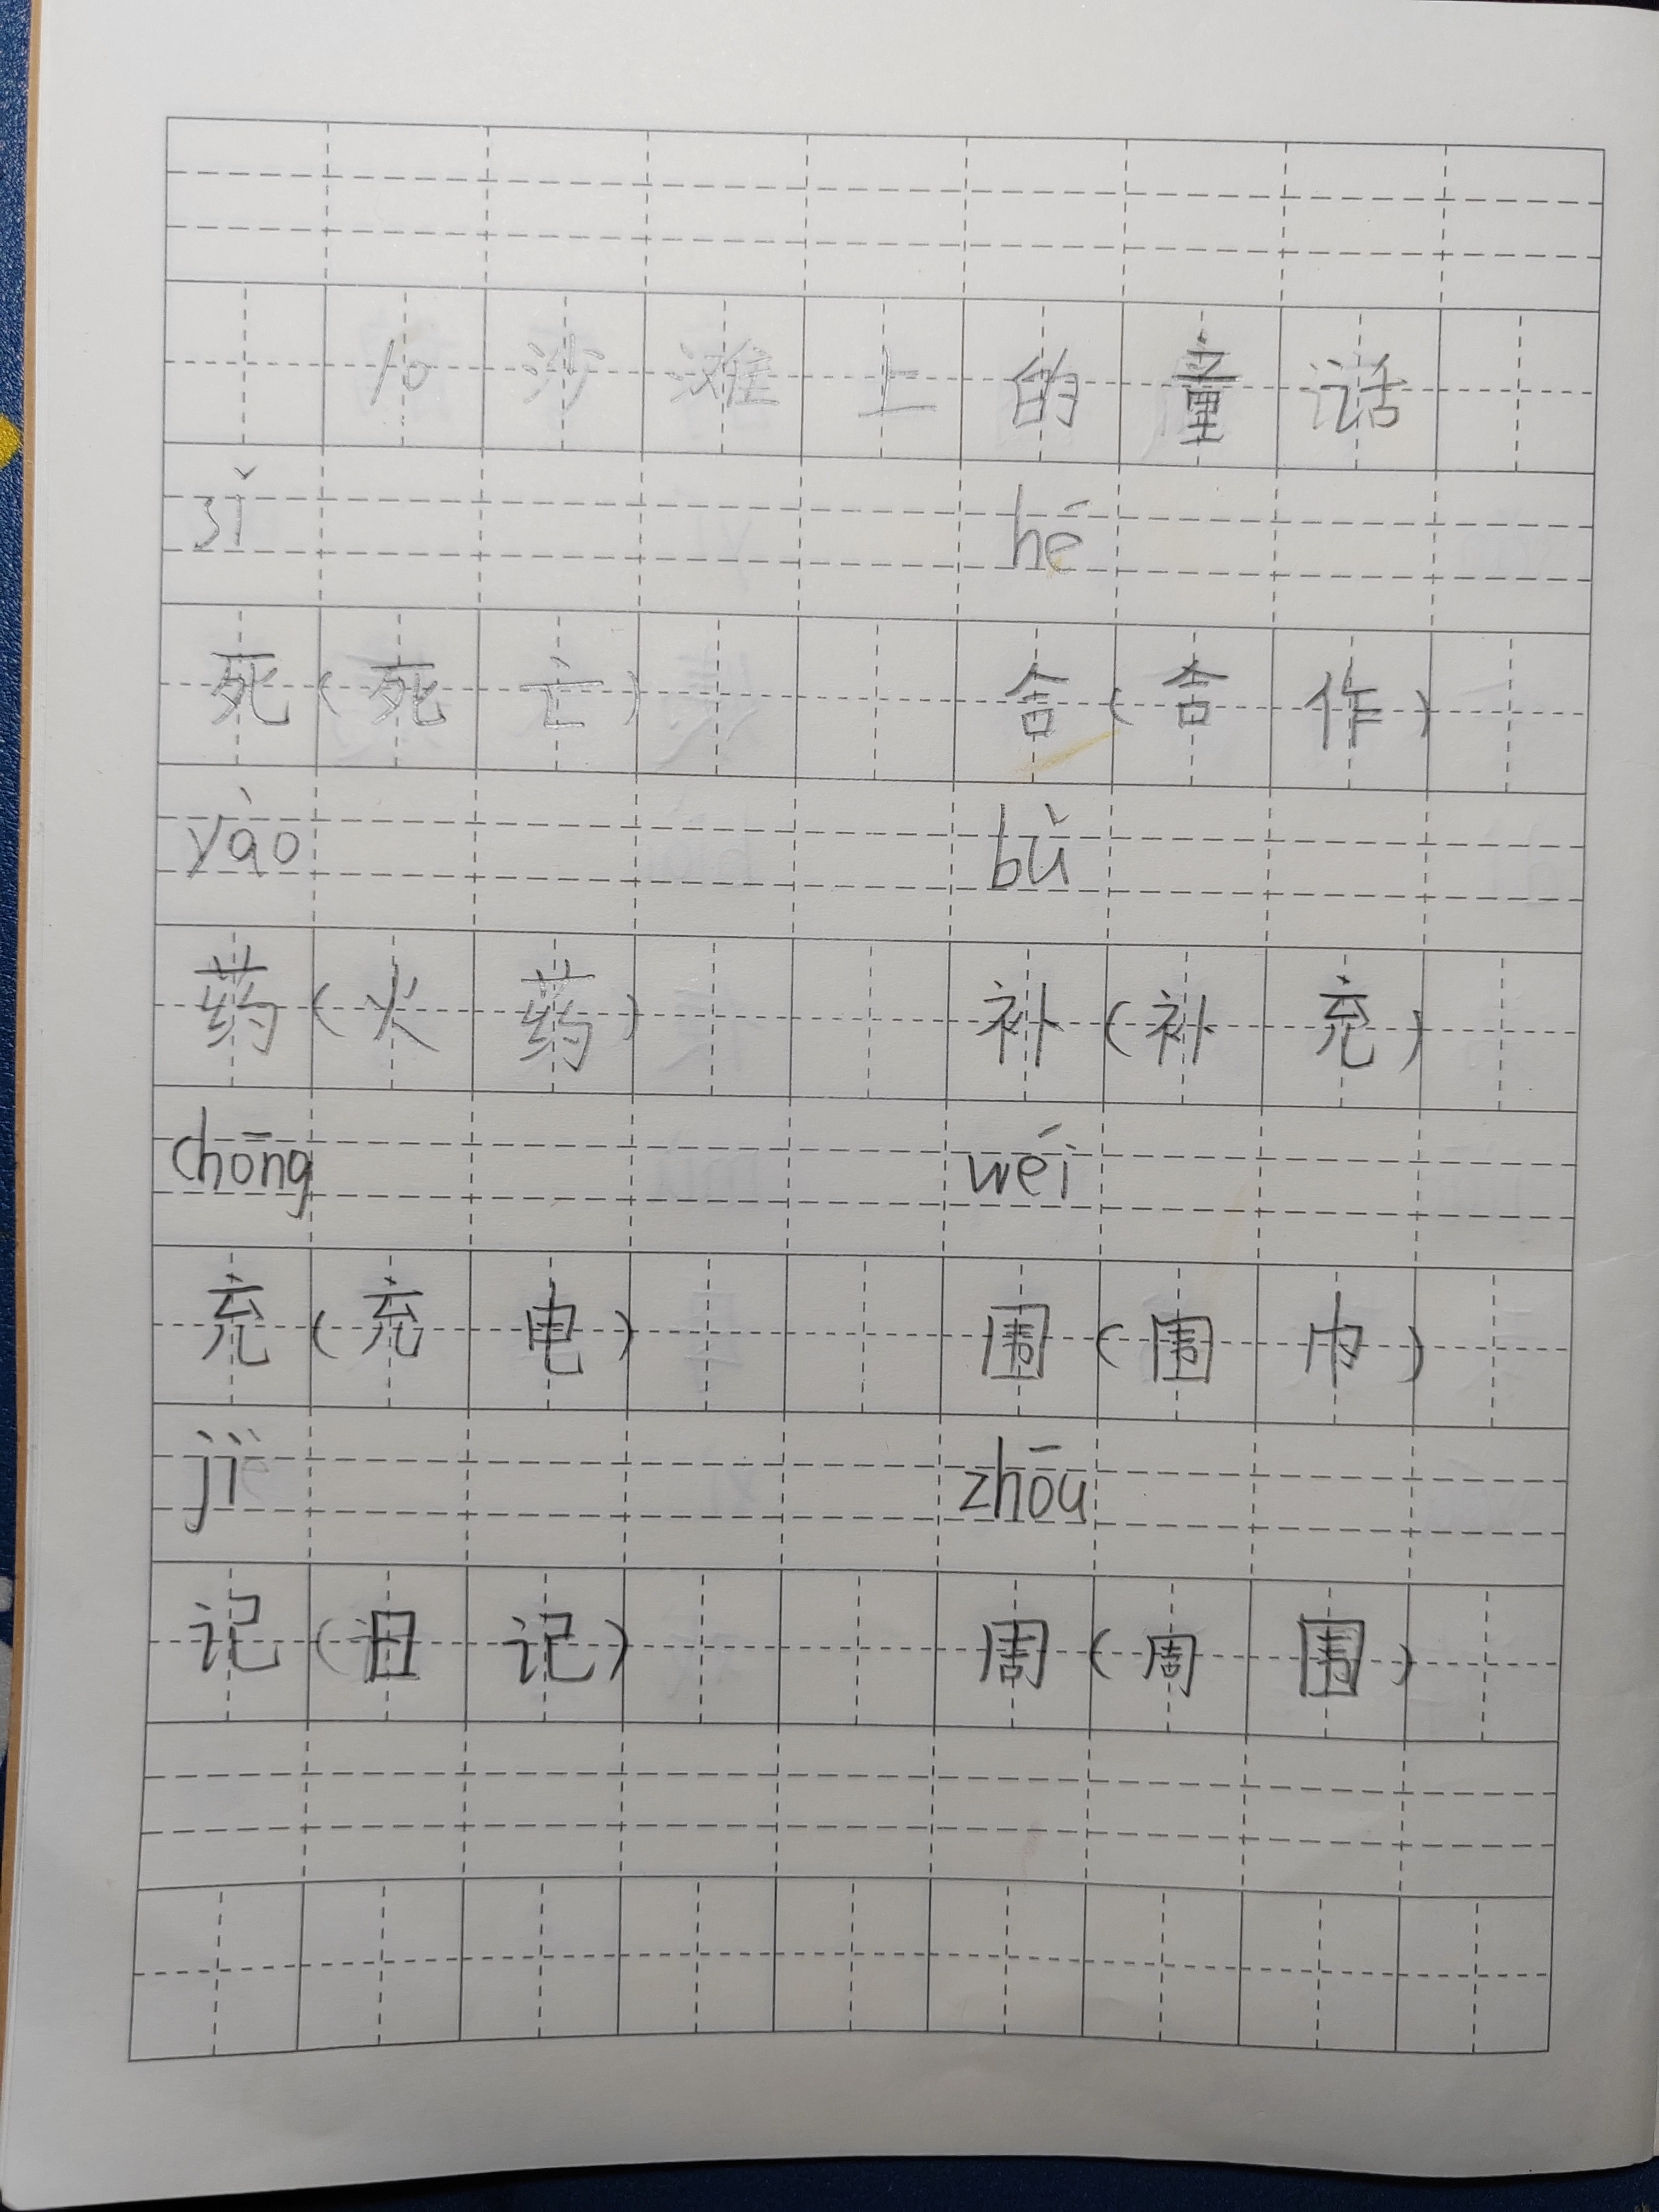 10沙滩上的童话
sǐ hé
死(死亡) 合(合作)
yào bǔ
药(火药) 补(补充)
chōng wéi
充(充电) 围(围巾)
jì zhōu
记(日记) 周(周围)